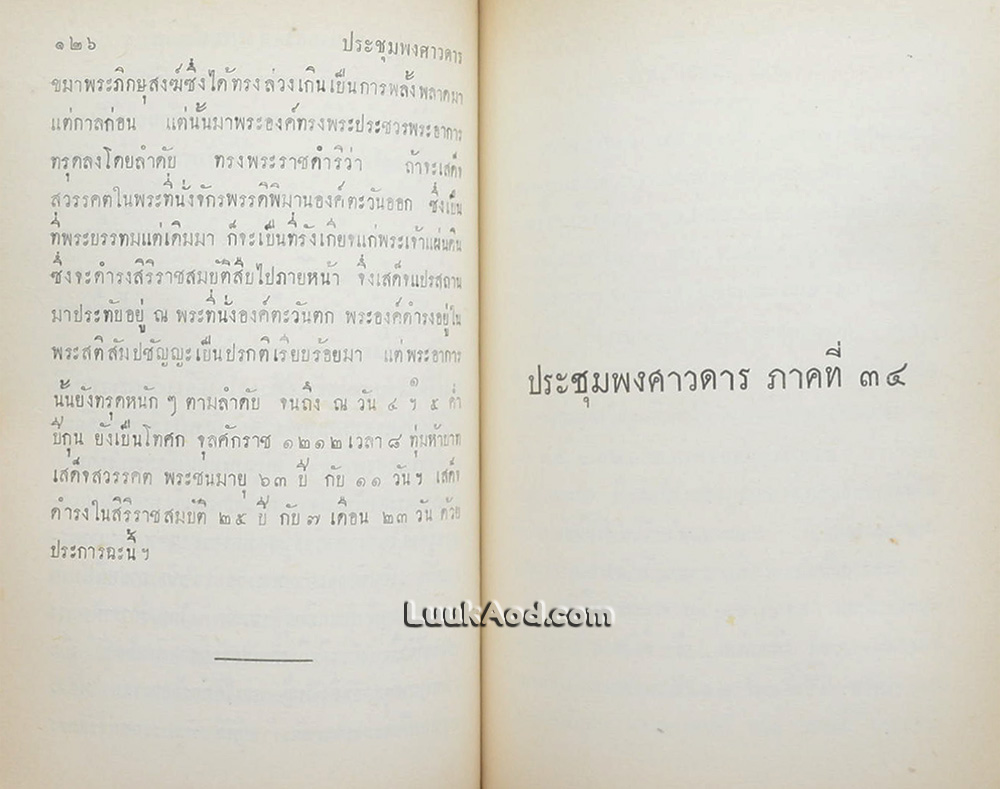 ๑๒๖ ประชุมพงศาวดาร
ขมาพระภิกษุสงฆ์ซึ่งได้ทรงล่วงเกินเป็นการพลั้งพลาดมา
แต่กาลก่อน แต่นั้นมาพระองค์ทรงพระประชวรพระอาการ
ทรุดลงโดยลำดับ ทรงพระราชดำริว่า ถ้าจะเสด็จ
สวรรคตในพระที่นั่งจักรพรรดิพิมานองค์ตะวันออก ซึ่งเป็น
ที่พระบรรทมแต่เดิมมา ก็จะเป็นที่รังเกียจแก่พระเจ้าแผ่นดิน
ซึ่งจะดำรงสิริราชสมบัติสืบไปภายหน้า จึ่งเสด็จแปรสถาน
มาประทับอยู่ ณ พระที่นั่งองค์ตะวันตก พระองค์ดำรงอยู่ใน
พระสติสัมปชัญญะเป็นปรกติเรียบร้อยมา แต่พระอาการ
นั้นยังทรุดหนัก ๆ ตามลำดับ จนถึง ณ วัน ๔ ๑ฯ ๕ ค่ำ
ปีกุน ยังเป็นโทศก จุลศักราช ๑๒๑๒ เวลา ๘ ทุ่มห้าบาท
เสด็จสวรรคต พระชนมายุ ๖๓ ปี กับ ๑๑ วันฯ เสด็จ
ดำรงในสิริราชสมบัติ ๒๕ ปี กับ ๗ เดือน ๒๓ วัน ด้วย
ประการฉะนี้ฯ
ประชุมพงศาวดาร ภาคที่ ๓๔
LuukAod.com